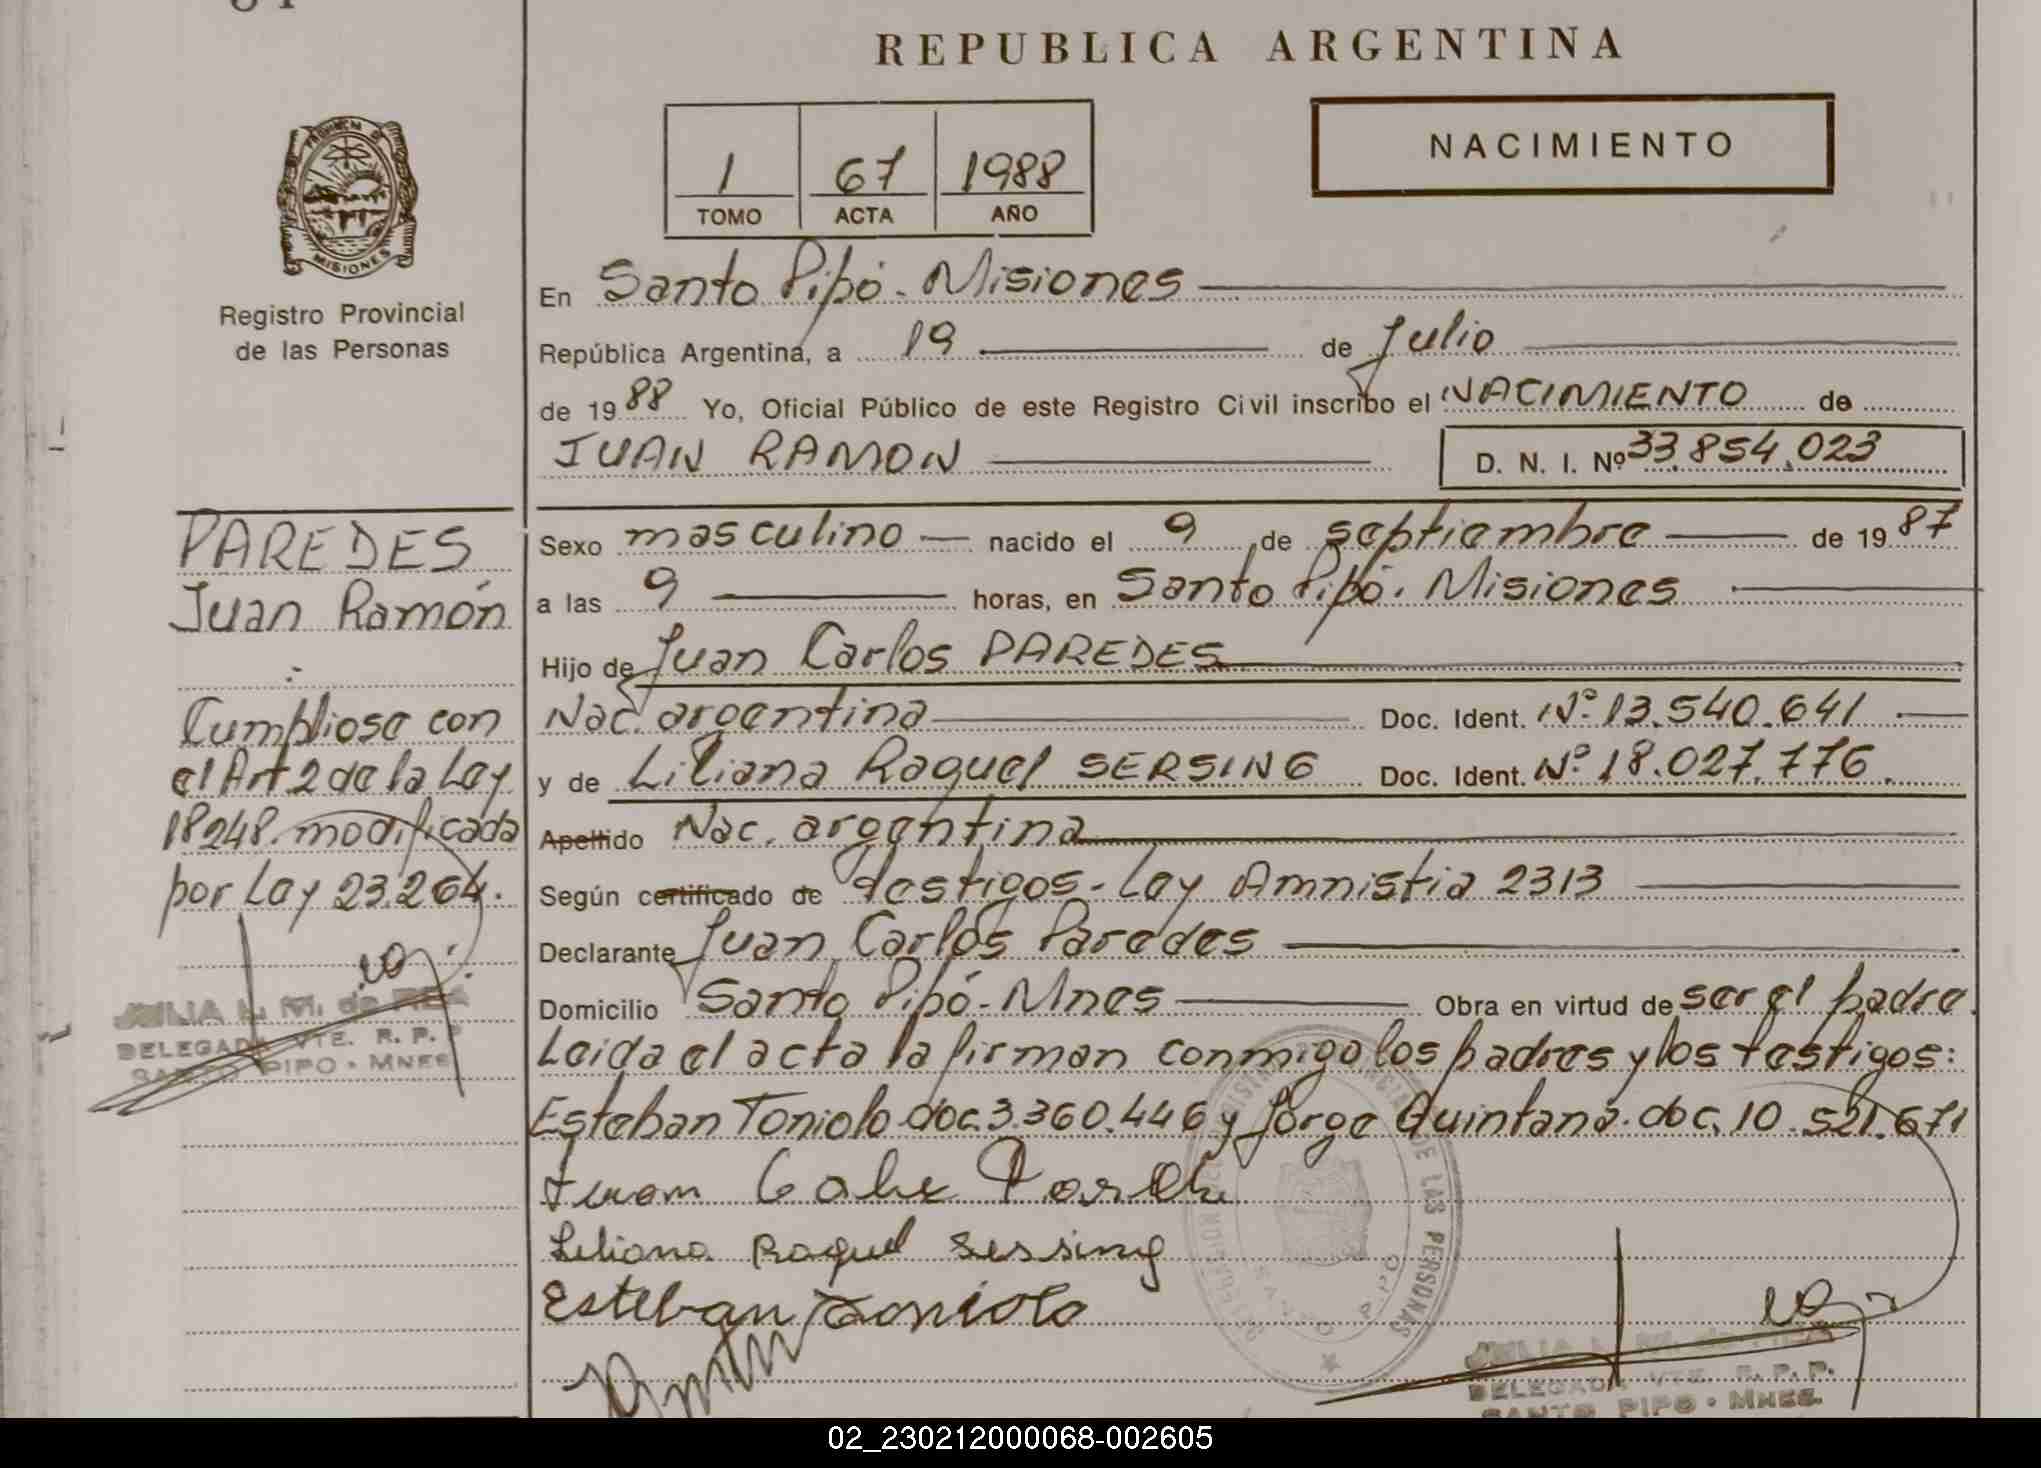 REPUBLICA ARGENTINA
NACIMIENTO
1 67 1988
TOMO ACTA AÑO
PROVINCIA DE
MISIONES
Registro Provincial
de las Personas
PAREDES
Juan Ramón
Cumpliose con
el Art 2 de la Ley
18248. modificada
por Ley 23.264.
JULIA L. M. de
DELEGADA VTE. R. P. P
SANTO PIPO - MNES
En Santo Pipó - Misiones
República Argentina, a 19 de Julio
de 1988 Yo, Oficial Público de este Registro Civil inscribo el NACIMIENTO de
JUAN RAMON D. N. I. Nº 33.854.023
Sexo masculino nacido el 9 de septiembre de 1987
a las 9 horas, en Santo Pipó. Misiones
Hijo de Juan Carlos PAREDES
Nac. argentina Doc. Ident. Nº 13.540.641
y de Liliana Raquel SERSING Doc. Ident. Nº 18.027.776.
Apellido Nac. argentina
Según certificado de testigos - Ley Amnistia 2313
Declarante Juan Carlos Paredes
Domicilio Santo Pipó - Mnes Obra en virtud de ser el padre.
Leida el acta la firman conmigo los padres y los testigos:
Esteban Toniolo doc. 3.360.446 y Jorge Quintana. doc. 10.521.671
Juan
Liliana Raquel Sessing
Esteban Toniolo
DE LAS PERSONAS
SANTO PIPO
JULIA L. M. de
DELEGADA VTE. R. P. P.
SANTO PIPO - MNES.
02_230212000068-002605